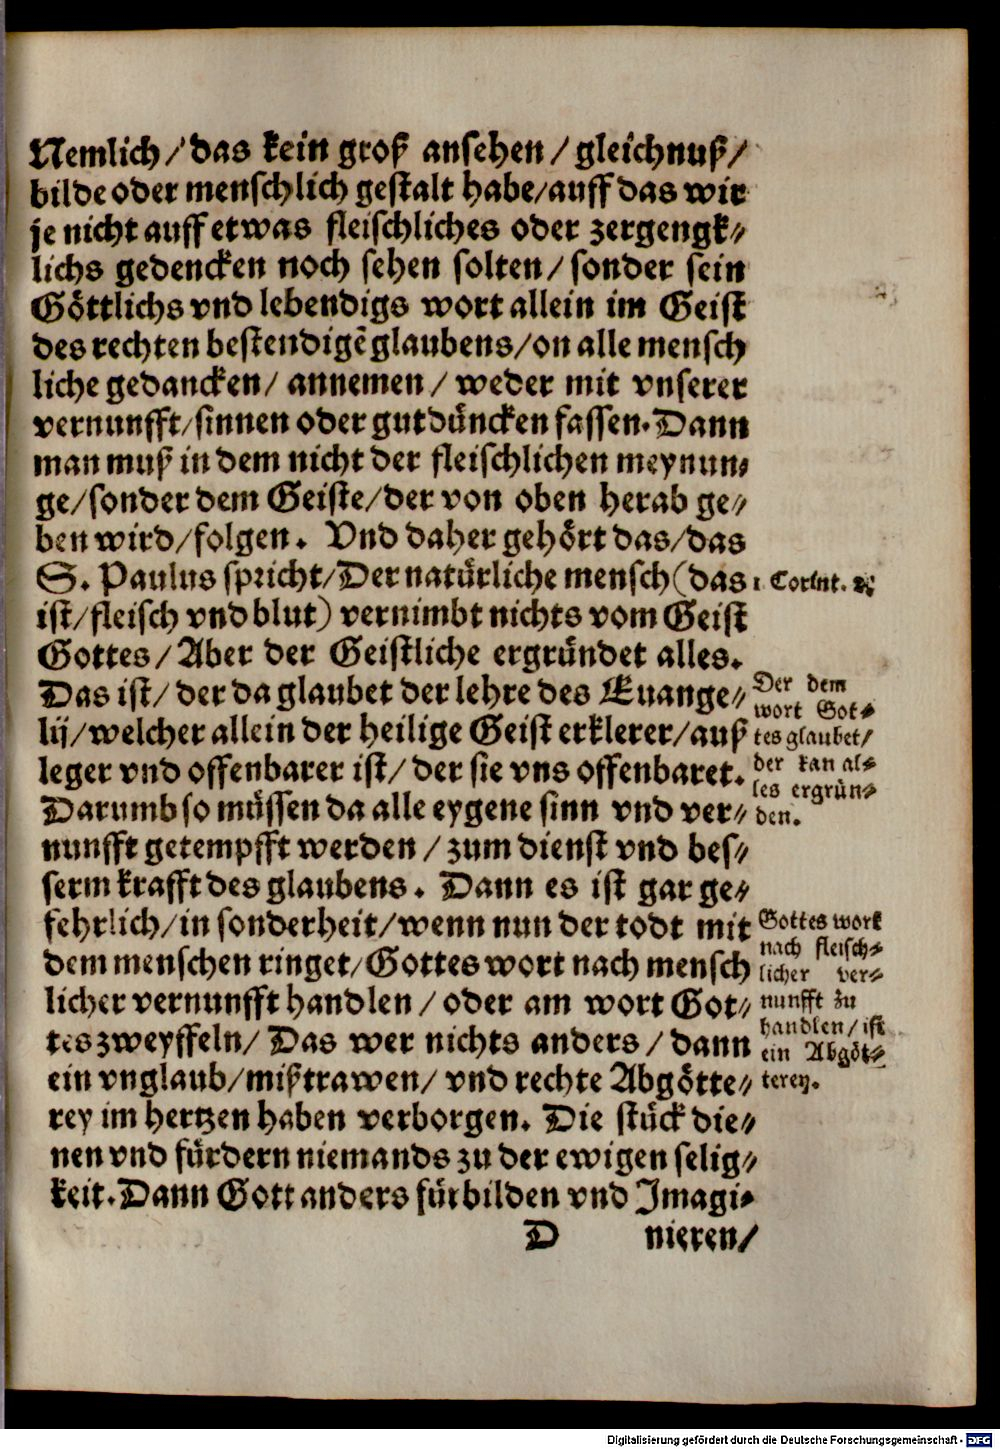 Nemlich/ das kein groß ansehen/ gleichnuß/
bilde oder menschlich gestalt habe/auff das wir
je nicht auff etwas fleischliches oder zergengk⸗
lichs gedencken noch sehen solten/ sonder sein
Göttlichs vnd lebendigs wort allein im Geist
des rechten bestendigẽ glaubens/on alle mensch
liche gedancken/ annemen/ weder mit vnserer
vernunfft/sinnen oder gutdüncken fassen. Dann
man muß in dem nicht der fleischlichen meynun⸗
ge/sonder dem Geiste/der von oben herab ge⸗
ben wird/folgen. Vnd daher gehört das/das
S. Paulus spricht/Der natürliche mensch (das
1 Corint.
ist/fleisch vnd blut) vernimbt nichts vom Geist
Gottes/ Aber der Geistliche ergründet alles.
Das ist/ der da glaubet der lehre des Euange⸗
lij/welcher allein der heilige Geist erklerer/auß
leger vnd offenbarer ist/ der sie vns offenbaret.
Darumb so müssen da alle eygene sinn vnd ver⸗
nunfft getempfft werden/ zum dienst vnd bes⸗
serm krafft des glaubens. Dann es ist gar ge⸗
fehrlich/in sonderheit/wenn nun der todt mit
dem menschen ringet/Gottes wort nach mensch
licher vernunfft handlen/ oder am wort Got⸗
tes zweyffeln/ Das wer nichts anders/ dann
ein vnglaub/mißtrawen/ vnd rechte Abgötte⸗
rey im hertzen haben verborgen. Die stück die⸗
nen vnd fürdern niemands zu der ewigen selig⸗
keit. Dann Gott anders fürbilden vnd Imagi⸗
D nieren/
Der dem
wort Got⸗
tes glaubet/
der kan al⸗
les ergrün⸗
den.
Gottes wort
nach fleisch⸗
licher ver⸗
nunfft zu
handlen/ ist
ein Abgöt⸗
terey.
Digitalisierung gefördert durch die Deutsche Forschungsgemeinschaft - DFG